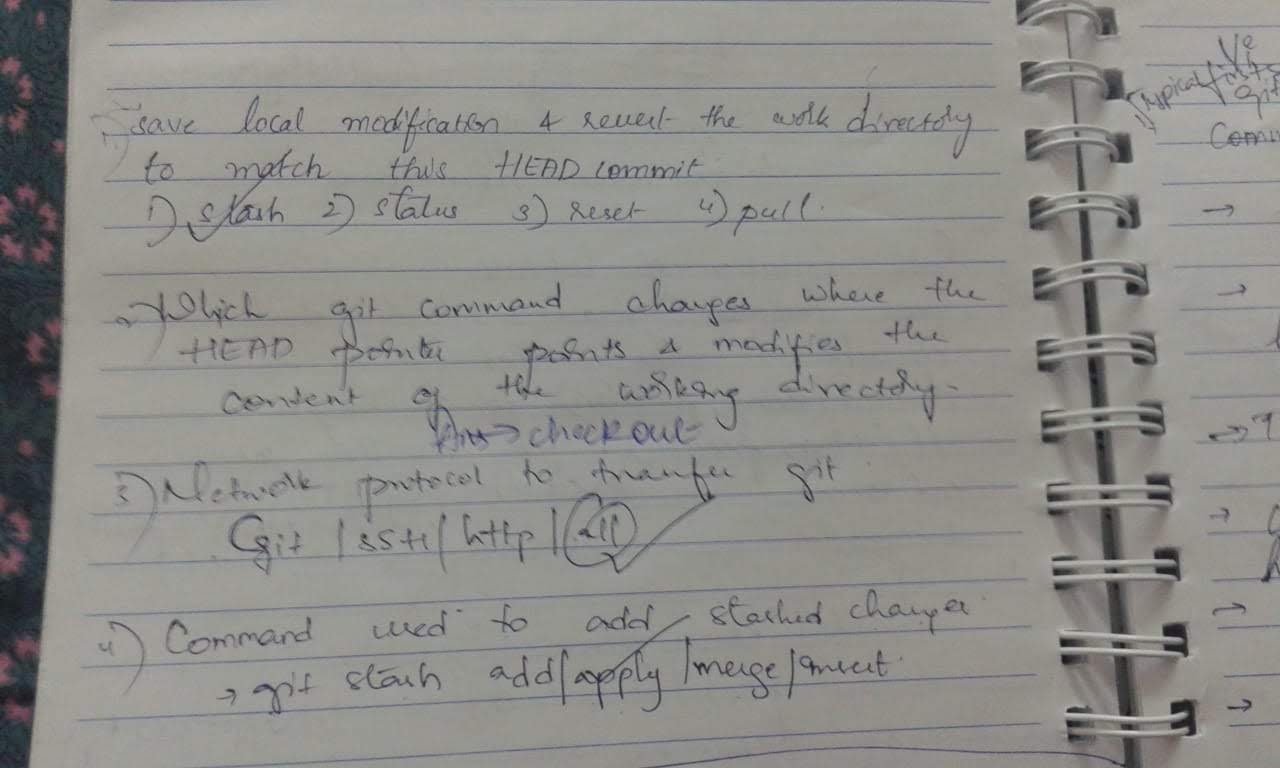 1) save local modification & revert the work directory
to match this HEAD commit
1) stash 2) status 3) reset 4) pull.
2) Which git command changes where the
HEAD pointer points & modifies the
content of the working directory.
Ans → checkout
3) Network protocol to tranfer git
git / SSH / http / all
4) Command used to add stashed changes
→ git stash add/apply/merge/insert.
Typical
git
Comm
→
→
→
→
→
→